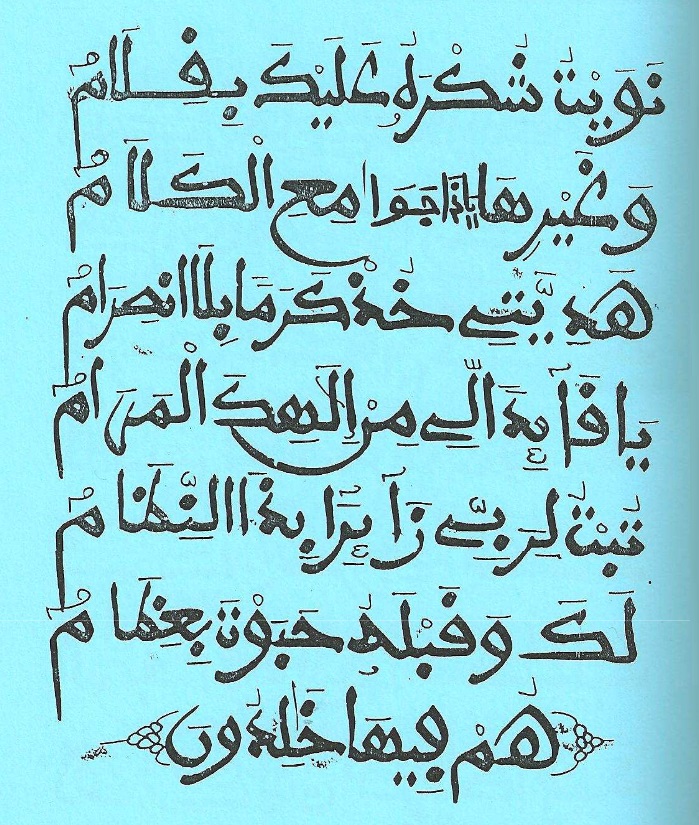 نَوَيْتُ شُكْرَهُ عَلَيْكَ بِقِلَامْ
وَغَيْرِهَا يَاذَا جَوَامِعِ الْكَلَامْ
هَدِيَّتِي خُذْ كَرَمًا بِلَا انصِرَامْ
يَا قَآئِدًا لِّي مِنِ الَهِكَ الْمَرَامْ
تُبْتُ لِرَبِّي زَآئِرًا بِذَا النِّظَامْ
لَكَ وَقَبْلَهُ حَبَوْتَ بِعِظَامْ
هُمْ فِيهَا خَلِدُونَ